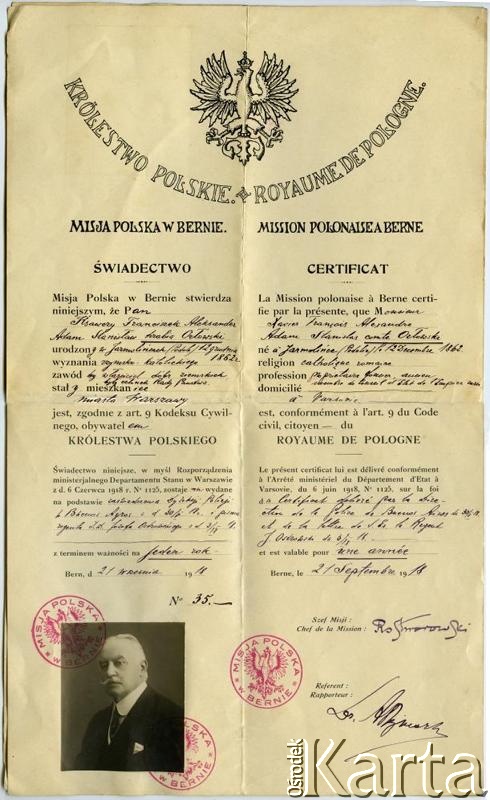 KRÓLESTWO POLSKIE. ROYAUME DE POLOGNE.
MISJA POLSKA W BERNIE.
ŚWIADECTWO
Misja Polska w Bernie stwierdza
niniejszym, że Pan
Ksawery Franciszek Aleksander
Adam Stanisław hrabia Orłowski
urodzony w Jarmolincach 12 grudnia
1862 r.
wyznania rzymsko-katolickiego
zawód
stały mieszkaniec
miasta Warszawy
jest, zgodnie z art. 9 Kodeksu Cywil-
nego, obywatelem
KRÓLESTWA POLSKIEGO
Świadectwo niniejsze, w myśl Rozporządzenia
ministerjalnego Departamentu Stanu w Warszawie
z d. 6 Czerwca 1918 r. Nº 1125, zostaje wydane
na podstawie
z terminem ważności na jeden rok
Bern, d 21 września 1918
Nº 35.—
MISSION POLONAISE A BERNE
CERTIFICAT
La Mission polonaise à Berne certi-
fie par la présente, que Monsieur
Xavier François Alexandre
Adam Stanislas comte Orlowski
né à Jarmolince 12 Décembre 1862
religion catholique romaine
profession propriétaire foncier, ancien
domicilié
à Varsovie
est, conformément à l'art. 9 du Code
civil, citoyen — du
ROYAUME DE POLOGNE
Le présent certificat lui est délivré conformément
à l'Arrêté ministériel du Département d'Etat à
Varsovie, du 6 juin 1918, Nº 1125, sur la foi
du Certificat délivré par la Dire-
ction de la Police de Buenos Aires
et de la lettre de
J. Ostrowski
et est valable pour une année
Berne, le 21 Septembre 1918
Szef Misji:
Chef de la Mission:
Referent:
Rapporteur:
MISJA POLSKA W BERNIE
MISJA POLSKA W BERNIE
POLSKA W BERNIE
Ośrodek Karta